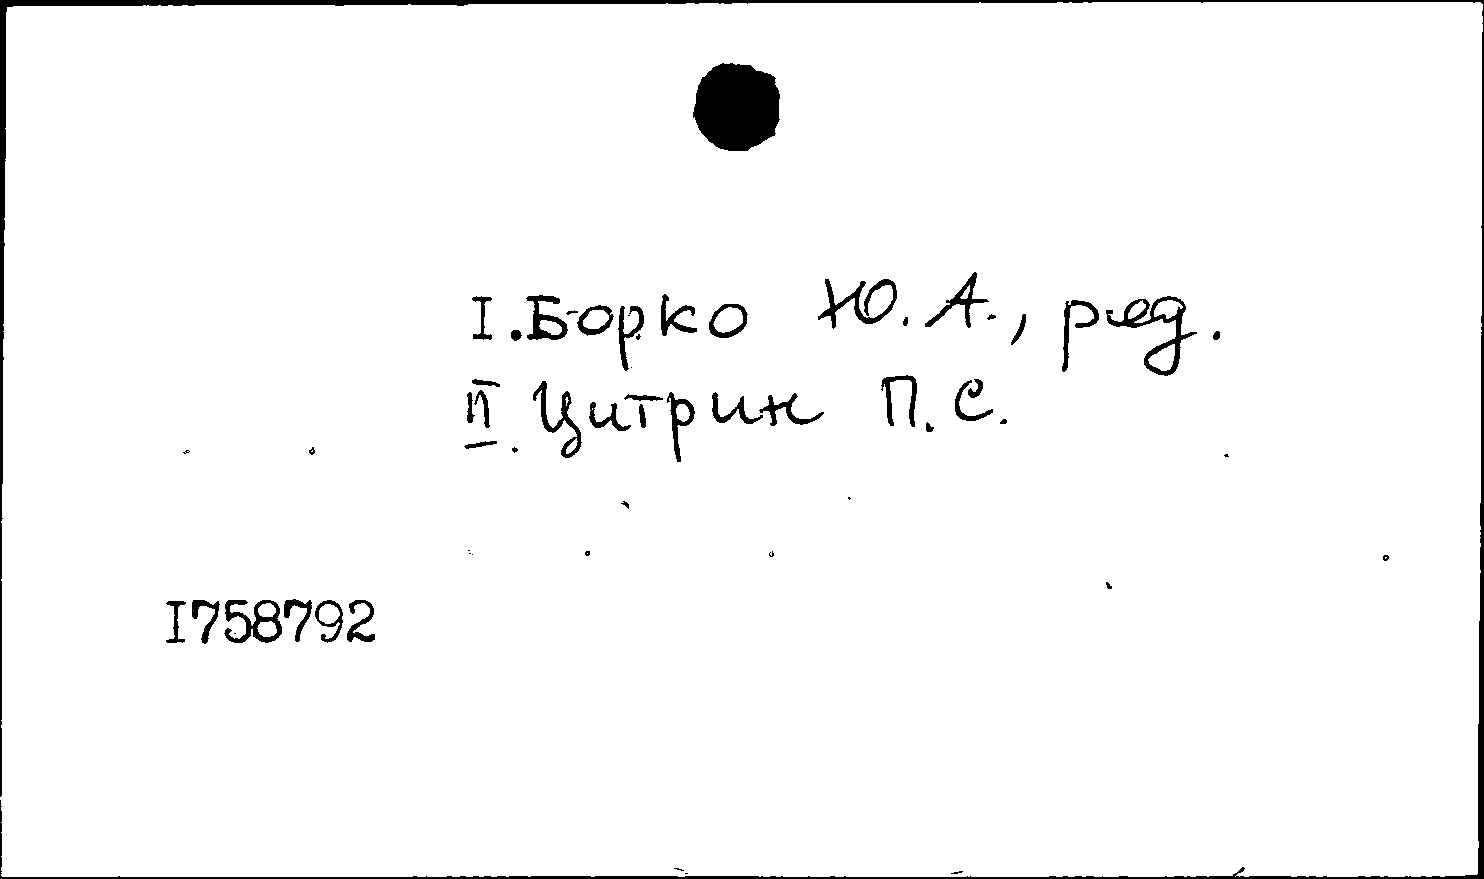 I. Борко Ю. А., ред.
II. Цитрин П. С.
I758792